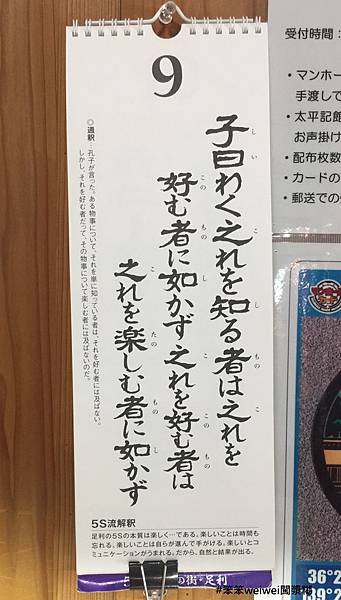 9
子曰わく之れを知る者は之れを
好む者に如かず之れを好む者は
之れを楽しむ者に如かず
○通釈…孔子が言った。ある物事について、それを単に知っている者は、それを好む者には及ばない。
しかし、それを好む者だって、その物事について楽しむ者には及ばないのだ。
5S流解釈
足利の5Sの本質は楽しく…である。楽しいことは時間も
忘れる。楽しいことは自らが進んで手がける。楽しいとコ
ミュニケーションがうまれる。だから、自然と結果が出る。
の街・足利
受付時間：
・マンホー
手渡して
・太平記館
お声掛け
・配布枚数
・カードの
・郵送での
36°2
#笨笨weiwei闖漿糊